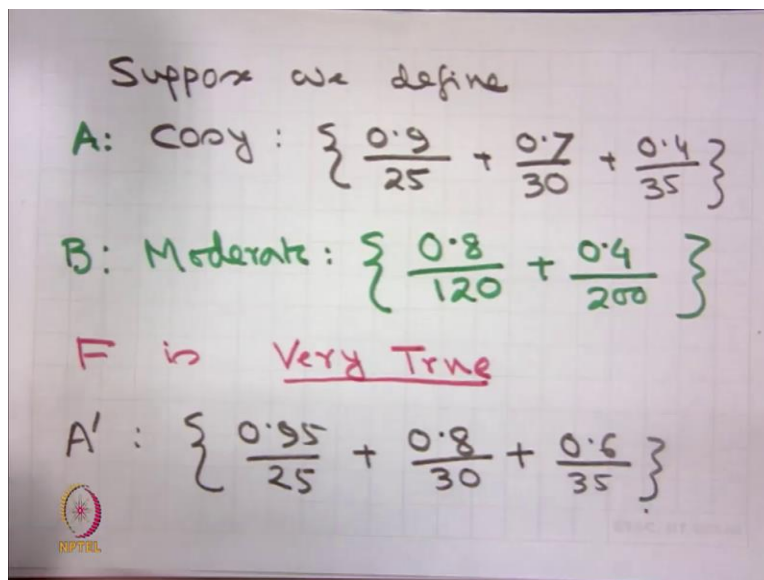 Suppose we define
A: Cosy : { 0.9/25 + 0.7/30 + 0.4/35 }
B: Moderate : { 0.8/120 + 0.4/200 }
F is Very True
A' : { 0.95/25 + 0.8/30 + 0.6/35 }
NPTEL